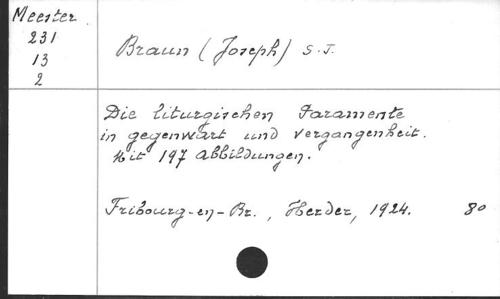 Meester
231
13
2
Braun (Joseph) S.J.
Die liturgischen Paramente
in gegenwart und vergangenheit.
Mit 197 abbildungen.
Fribourg-en-Br., Herder, 1924. 8o